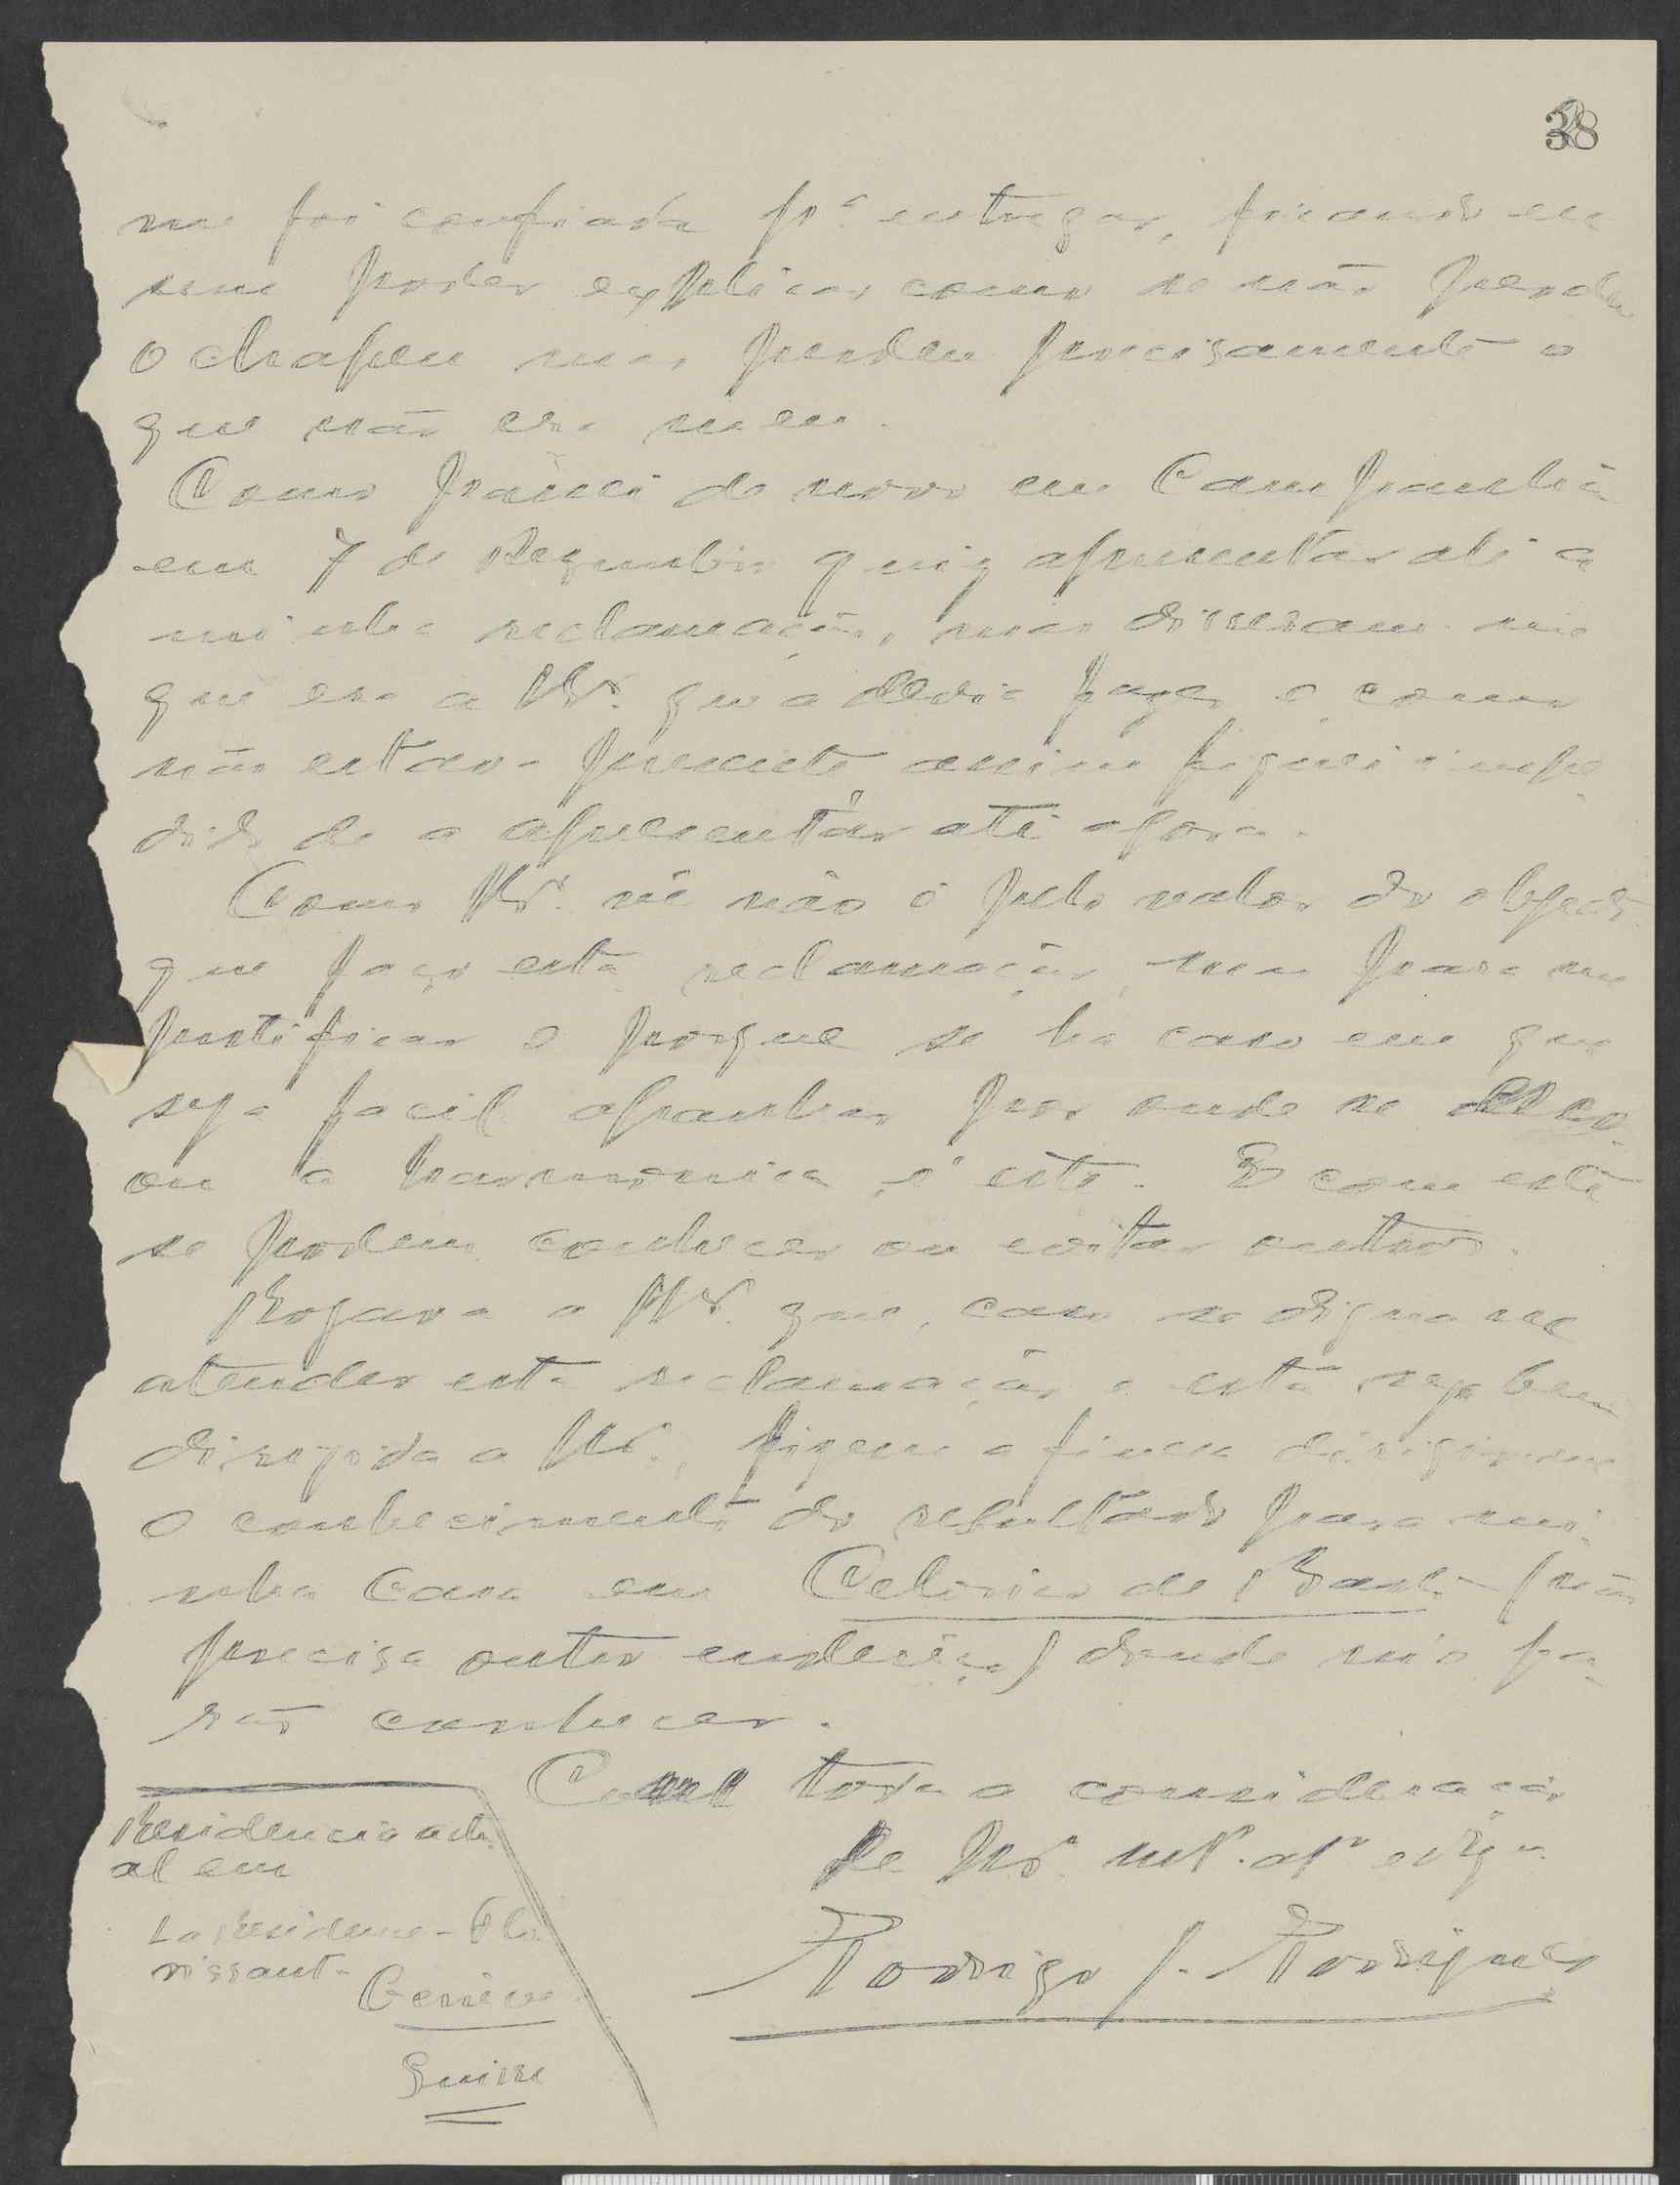 38
me foi confiada pª entregar, ficando eu
sem poder explicar como se não perdeu
o chapeu mas perdeu precisamente o
que não era meu.
Como passei de novo em Campanhã
em 7 de quiz apresentar ali a
minha reclamação, mas disseram-me
que era a Vª. que a devia fazer e como
não estava presente assim fiquei impe-
dido de a apresentar até agora.
Como Vª. vê não é pelo valor do objecto
que faço esta reclamação, mas para me
justificar e porque se ha caso em que
seja facil apanhar por onde se
ou a harmonica é este. E com este
se podem conhecer ou evitar outros.
Rogava a Vª. que, caso se digne
atender esta reclamação e esta seja bem
dirigida a Vª., fizesse a fineza dirigir-me
o conhecimento do resultado para mi-
nha casa em Celorico de Basto (não
precisa outro endereço) donde m'o fa-
rão conhecer.
Com toda a consideração
De Vª. mtº. atº
Rodrigo J. Rodrigues
Residencia actu-
al em
La Residence - Flo-
rissant -
Genève
Suisse